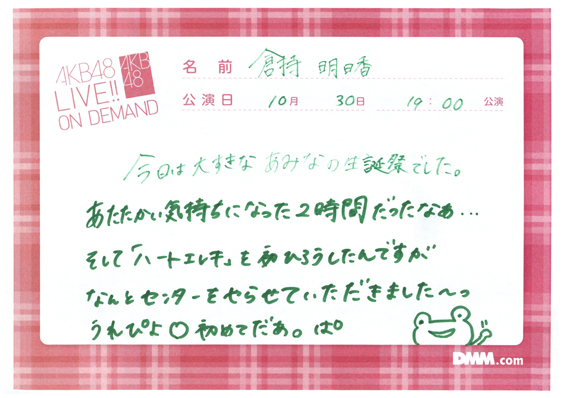 AKB48
LIVE!!
ON DEMAND
AKB
48
名前 倉持 明日香
公演日 10月 30日 19:00 公演
今日は大すきな あみなの生誕祭でした。
あたたかい気持ちになった2時間だったなぁ...
そして「ハートエレキ」を初ひろうしたんですが
なんとセンターをやらせていただきました〜っ
うれぴよ〇 初めてだあ。ぱ°
DMM.com